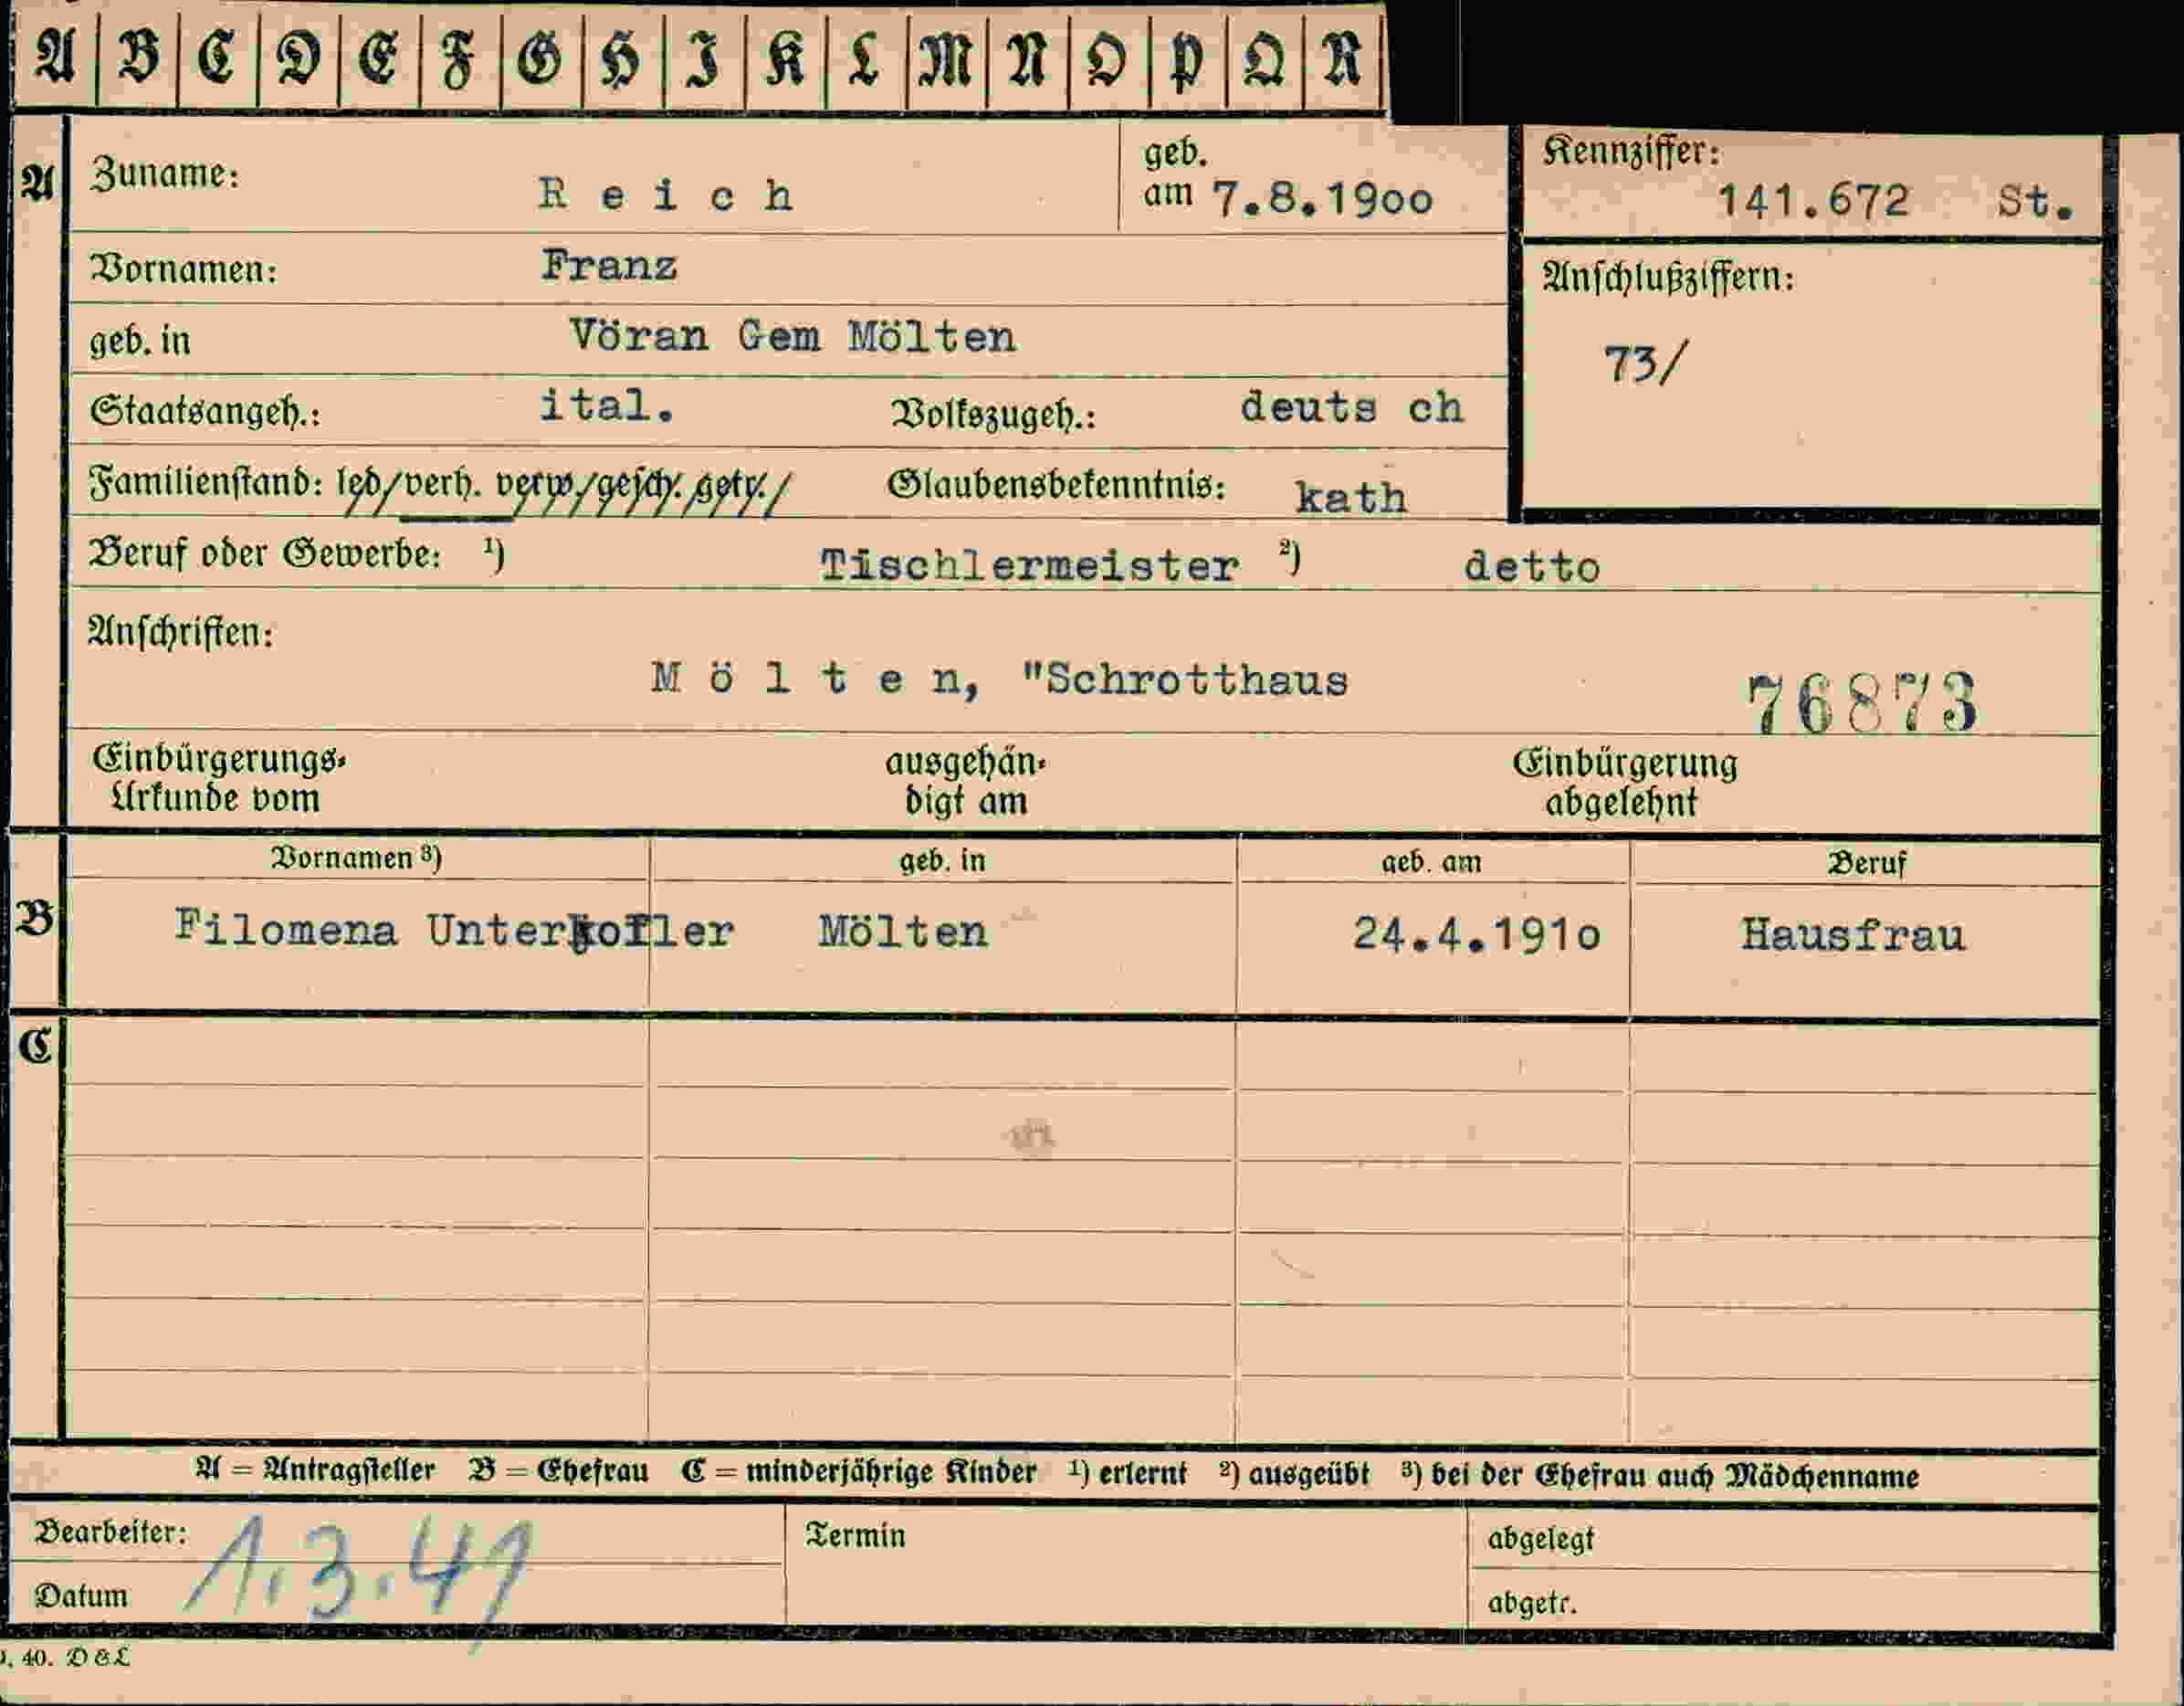 A B C D E F G H I K L M N O P Q R
A Zuname: Reich geb. am 7.8.19oo Kennziffer: 141.672 St.
Vornamen: Franz
Anschlußziffern:
geb. in Vöran Gem Mölten
73/
Staatsangeh.: ital. Volkszugeh.: deuts ch
Familienstand: led/verh. verw./gesch. getr./ Glaubensbekenntnis: kath
Beruf oder Gewerbe: ¹) Tischlermeister ²) detto
Anschriften:
Mölten, "Schrotthaus
76873
Einbürgerungs-Urkunde vom ausgehändigt am Einbürgerung abgelehnt
Vornamen ³) geb. in geb. am Beruf
B Filomena Unterkofler Mölten 24.4.191o Hausfrau
C
A = Antragsteller B = Ehefrau C = minderjährige Kinder ¹) erlernt ²) ausgeübt ³) bei der Ehefrau auch Mädchenname
Bearbeiter: Termin abgelegt
1.3.41
Datum abgetr.
40. D & L